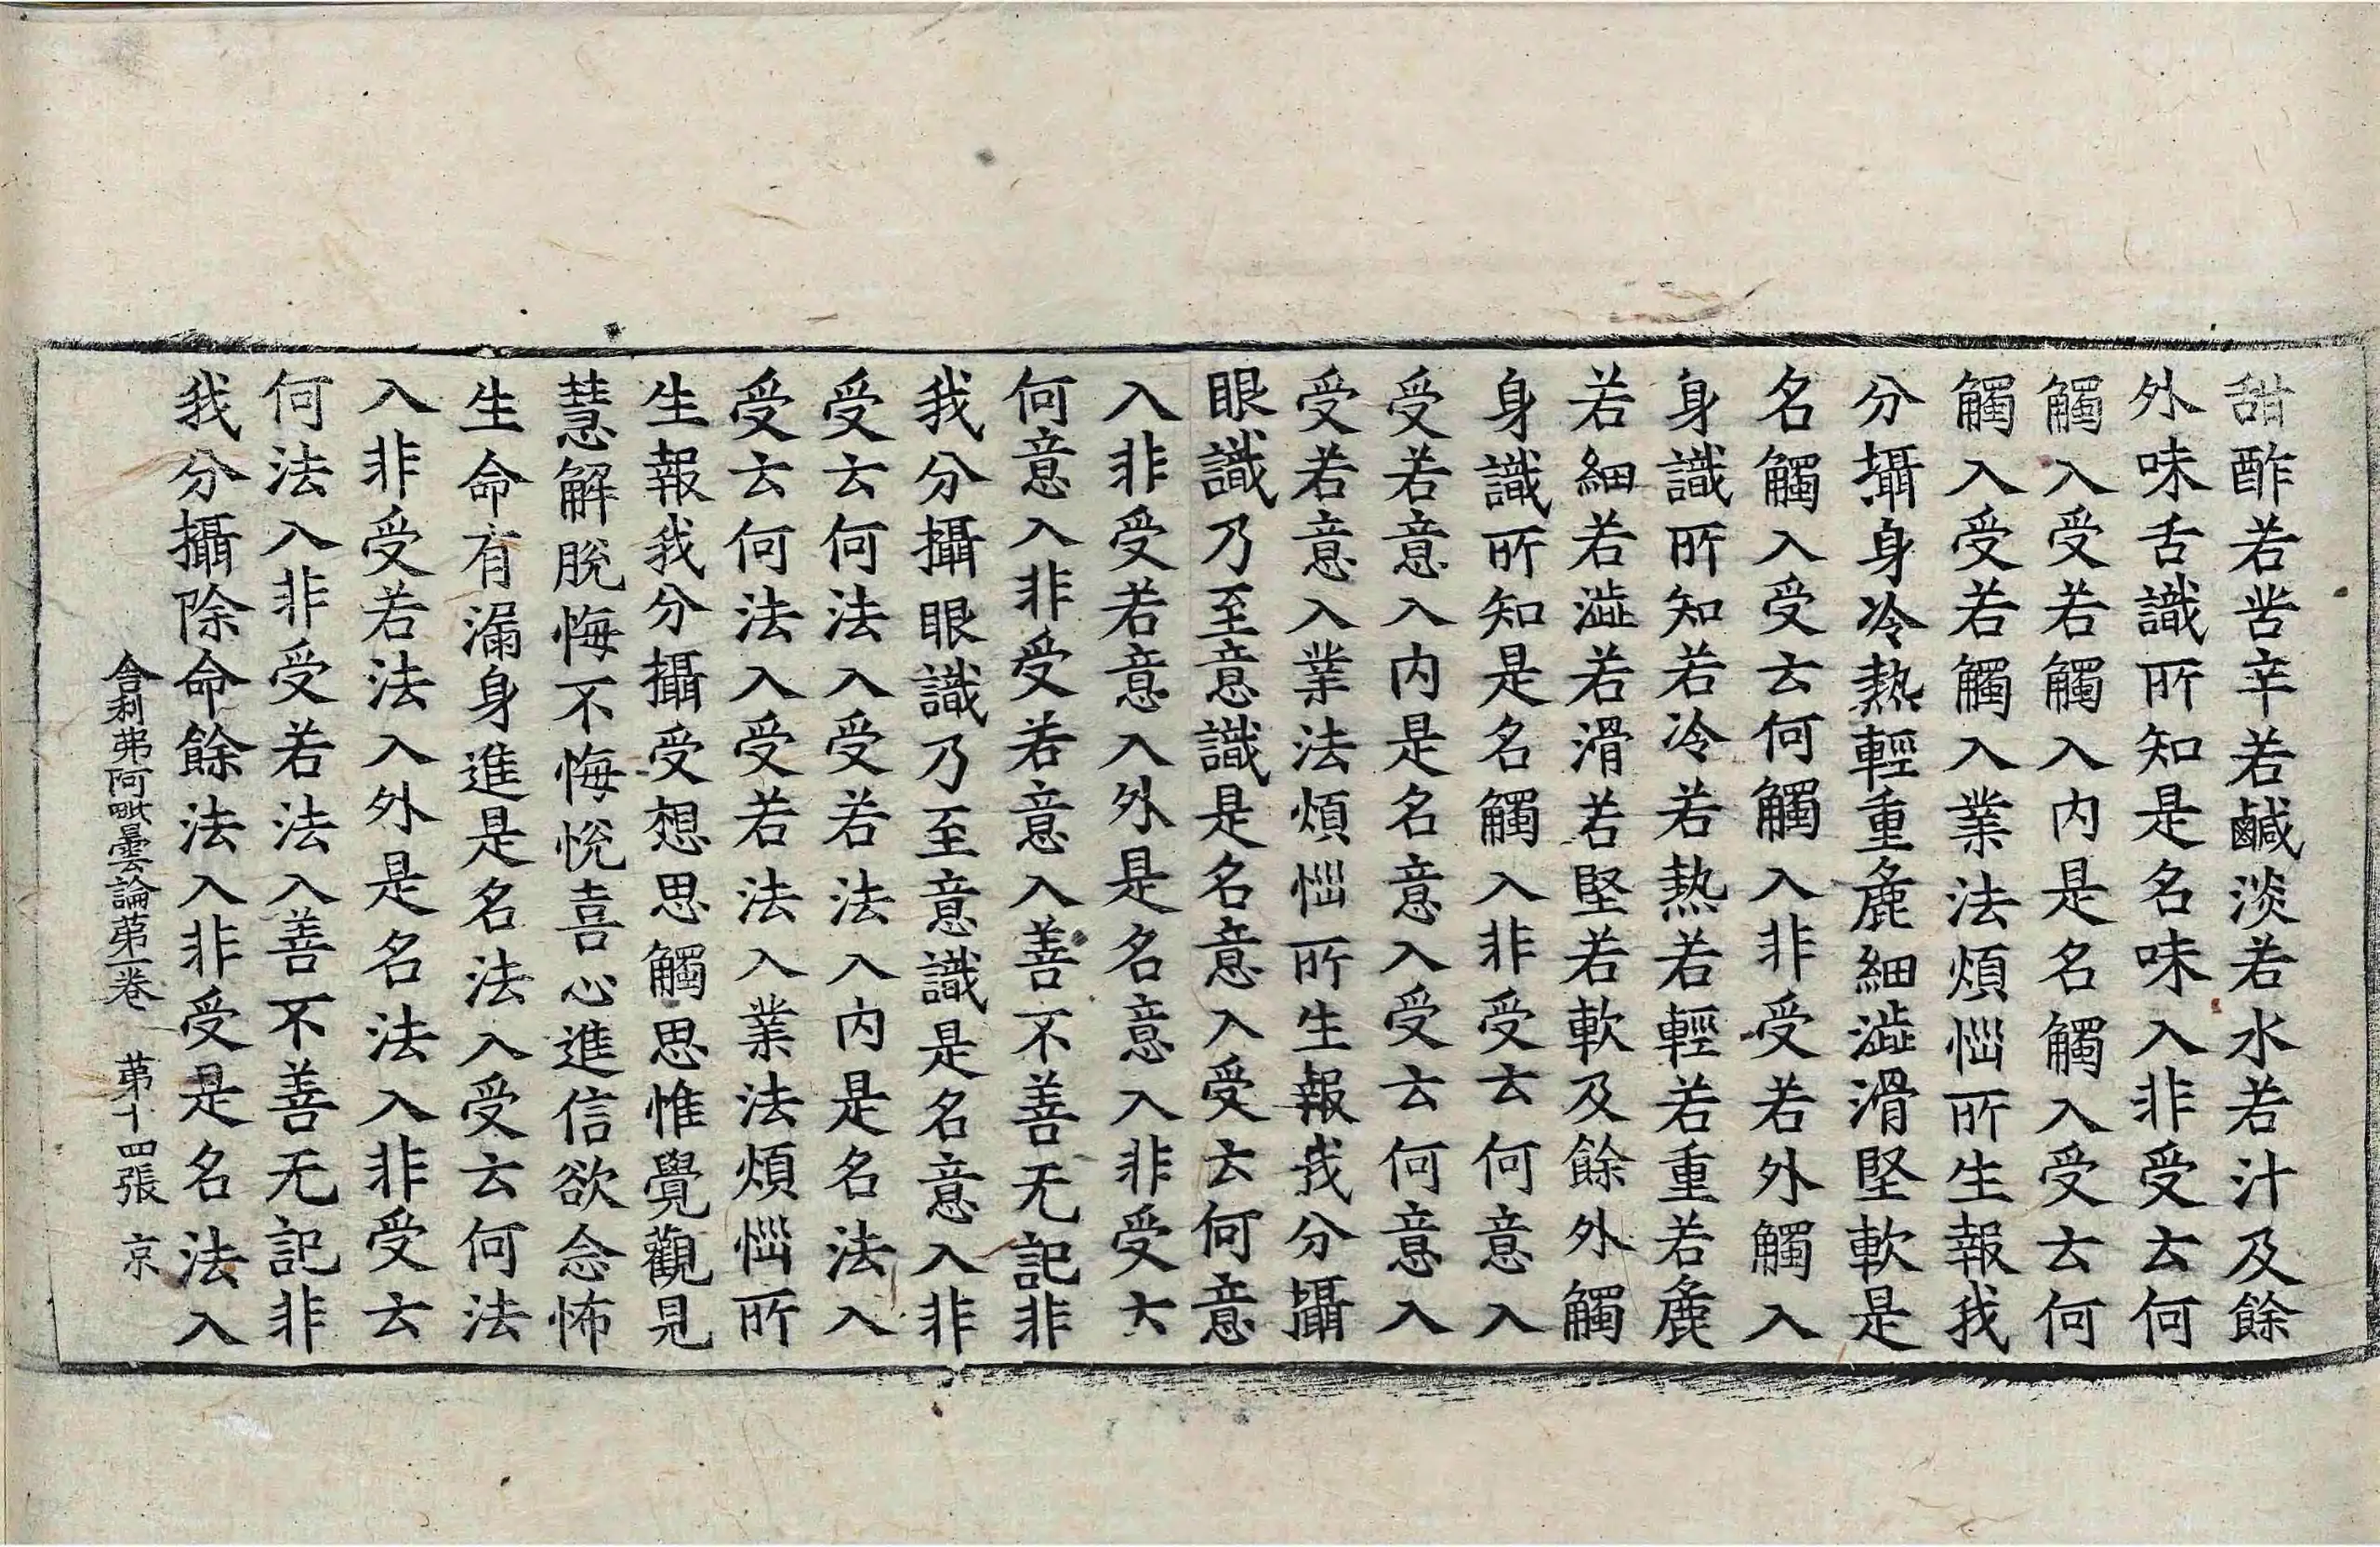 甜酢若苦辛若鹹淡若水若汁及餘
外味舌識所知是名味入非受云何
觸入受若觸入内是名觸入受云何
觸入受若觸入業法煩惱所生報我
分攝身冷熱輕重麁細澁滑堅軟是
名觸入受云何觸入非受若外觸入
身識所知若冷若熱若輕若重若麁
若細若澁若滑若堅若軟及餘外觸
身識所知是名觸入非受云何意入
受若意入内是名意入受云何意入
受若意入業法煩惱所生報我分攝
眼識乃至意識是名意入受云何意
入非受若意入外是名意入非受云
何意入非受若意入善不善无記非
我分攝眼識乃至意識是名意入非
受云何法入受若法入内是名法入
受云何法入受若法入業法煩惱所
生報我分攝受想思觸思惟覺觀見
慧解脫悔不悔悅喜心進信欲念怖
生命有漏身進是名法入受云何法
入非受若法入外是名法入非受云
何法入非受若法入善不善无記非
我分攝除命餘法入非受是名法入
舍利弗阿毗曇論苐一卷　苐十四張　京